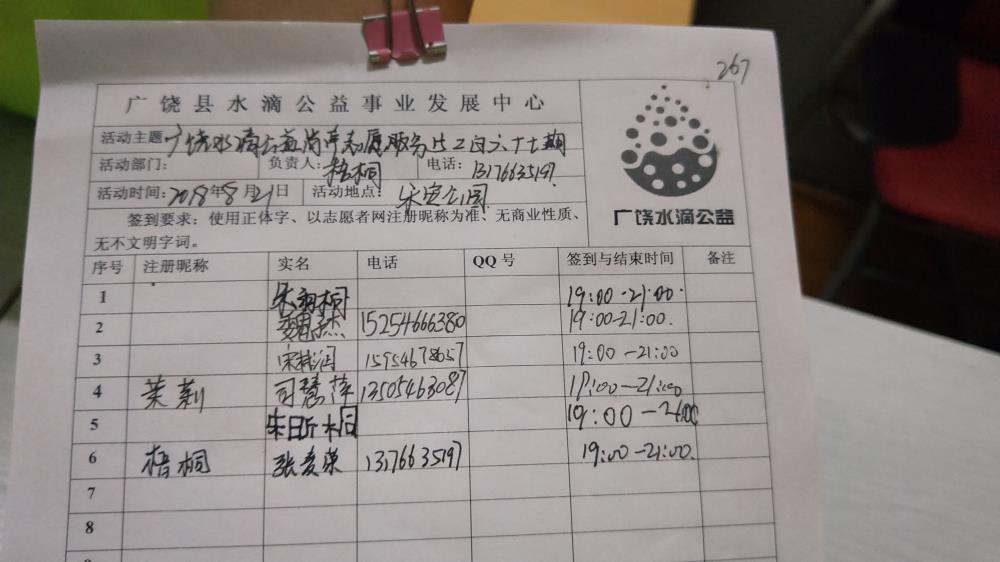 267
广饶县水滴公益事业发展中心
活动主题：广饶水滴公益尚 志愿服务 二百六十七期
活动部门： 负责人：梧桐 电话：13176635197
活动时间：2018年8月21日 活动地点：乐安公园
签到要求：使用正体字、以志愿者网注册昵称为准、无商业性质、
无不文明字词。
广饶水滴公益
序号 注册昵称 实名 电话 QQ号 签到与结束时间 备注
1 朱 桐 19:00-21:00
2 15254666380 19:00-21:00
3 宋 润 15954678657 19:00-21:00
4 茉莉 司慧萍 13505463087 19:00-21:00
5 朱 桐 19:00-21:00
6 梧桐 张 荣 13176635197 19:00-21:00
7
8